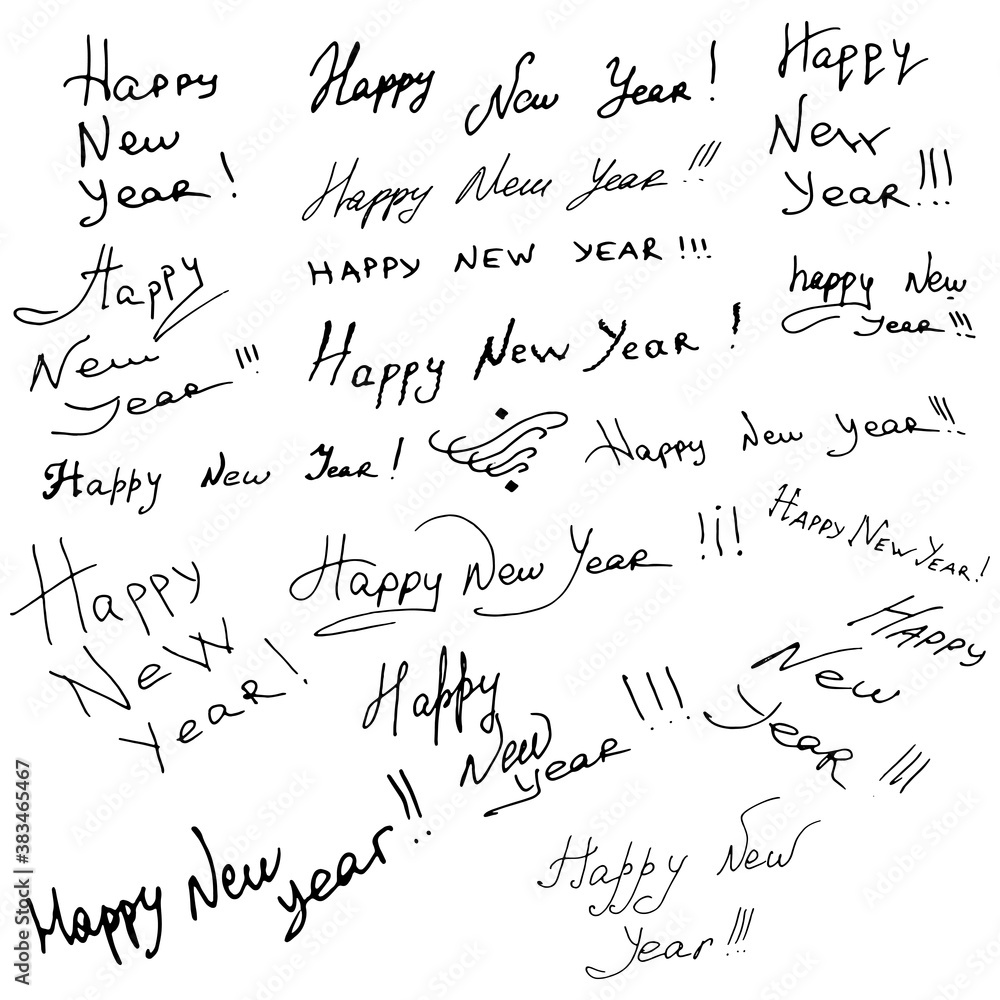 Happy
New
Year!
Happy New Year!
Happy
New
Year!!!
Happy New Year!!!
HAPPY NEW YEAR!!!
Happy
New
Year!!!
happy New
Year!!!
Happy New Year!
Happy New Year!
Happy New Year!!!
Happy New Year!
Happy
New
Year!
Happy New Year !i!
Happy
New
Year!!!
Happy
New
Year!!!
Happy New
Year!!
Happy New
Year!!!
Adobe Stock | #383465467